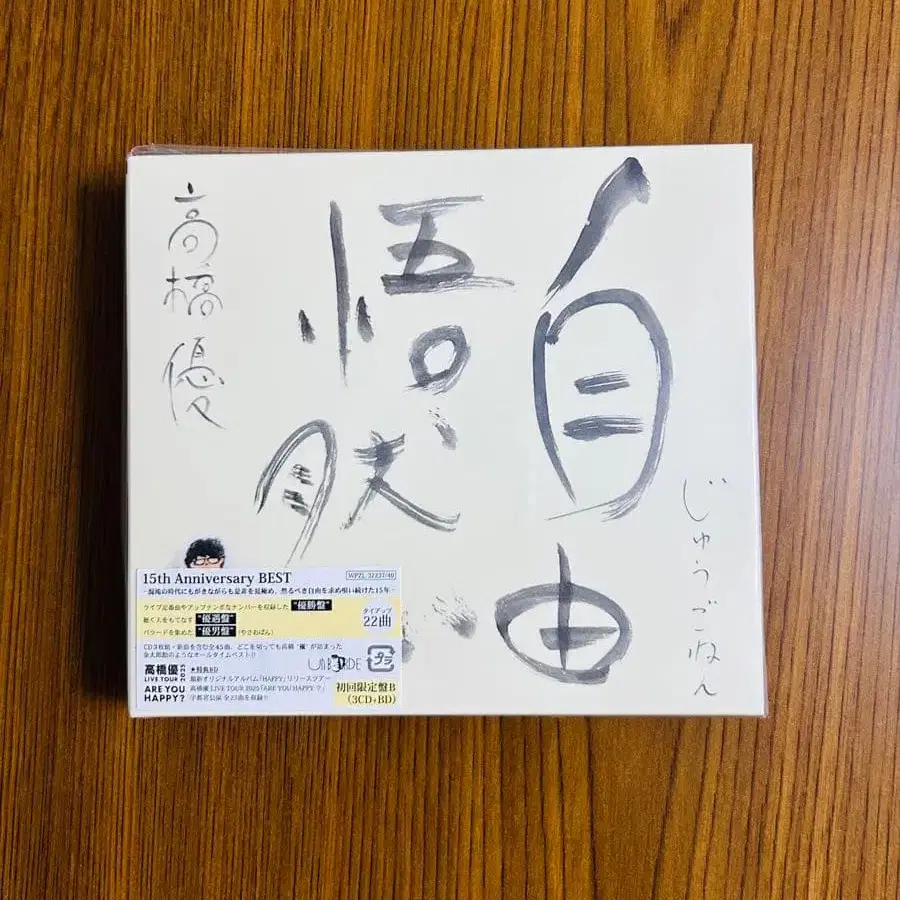 自由
悟然
じゅうごねん
高橋優
15th Anniversary BEST
WPZL 32237/40
－混沌の時代にもがきながらも是非を見極め、然るべき自由を求め唄い続けた15年－
ライブ定番曲やアップテンポなナンバーを収録した“優勝盤”
聴く人をもてなす“優遇盤”
バラードを集めた“優男盤”（やさおばん）
タイアップ
22曲
CD3枚組・新曲を含む全45曲、どこを切っても高橋“優”が詰まった
金太郎飴のようなオールタイムベスト!!
高橋優
LIVE TOUR 2025
ARE YOU
HAPPY?
★特典BD
最新オリジナルアルバム「HAPPY」リリースツアー
高橋優 LIVE TOUR 2025「ARE YOU HAPPY ?」
宇都宮公演 全23曲を収録!!
UNBORDE
プラ
初回限定盤B
(3CD+BD)